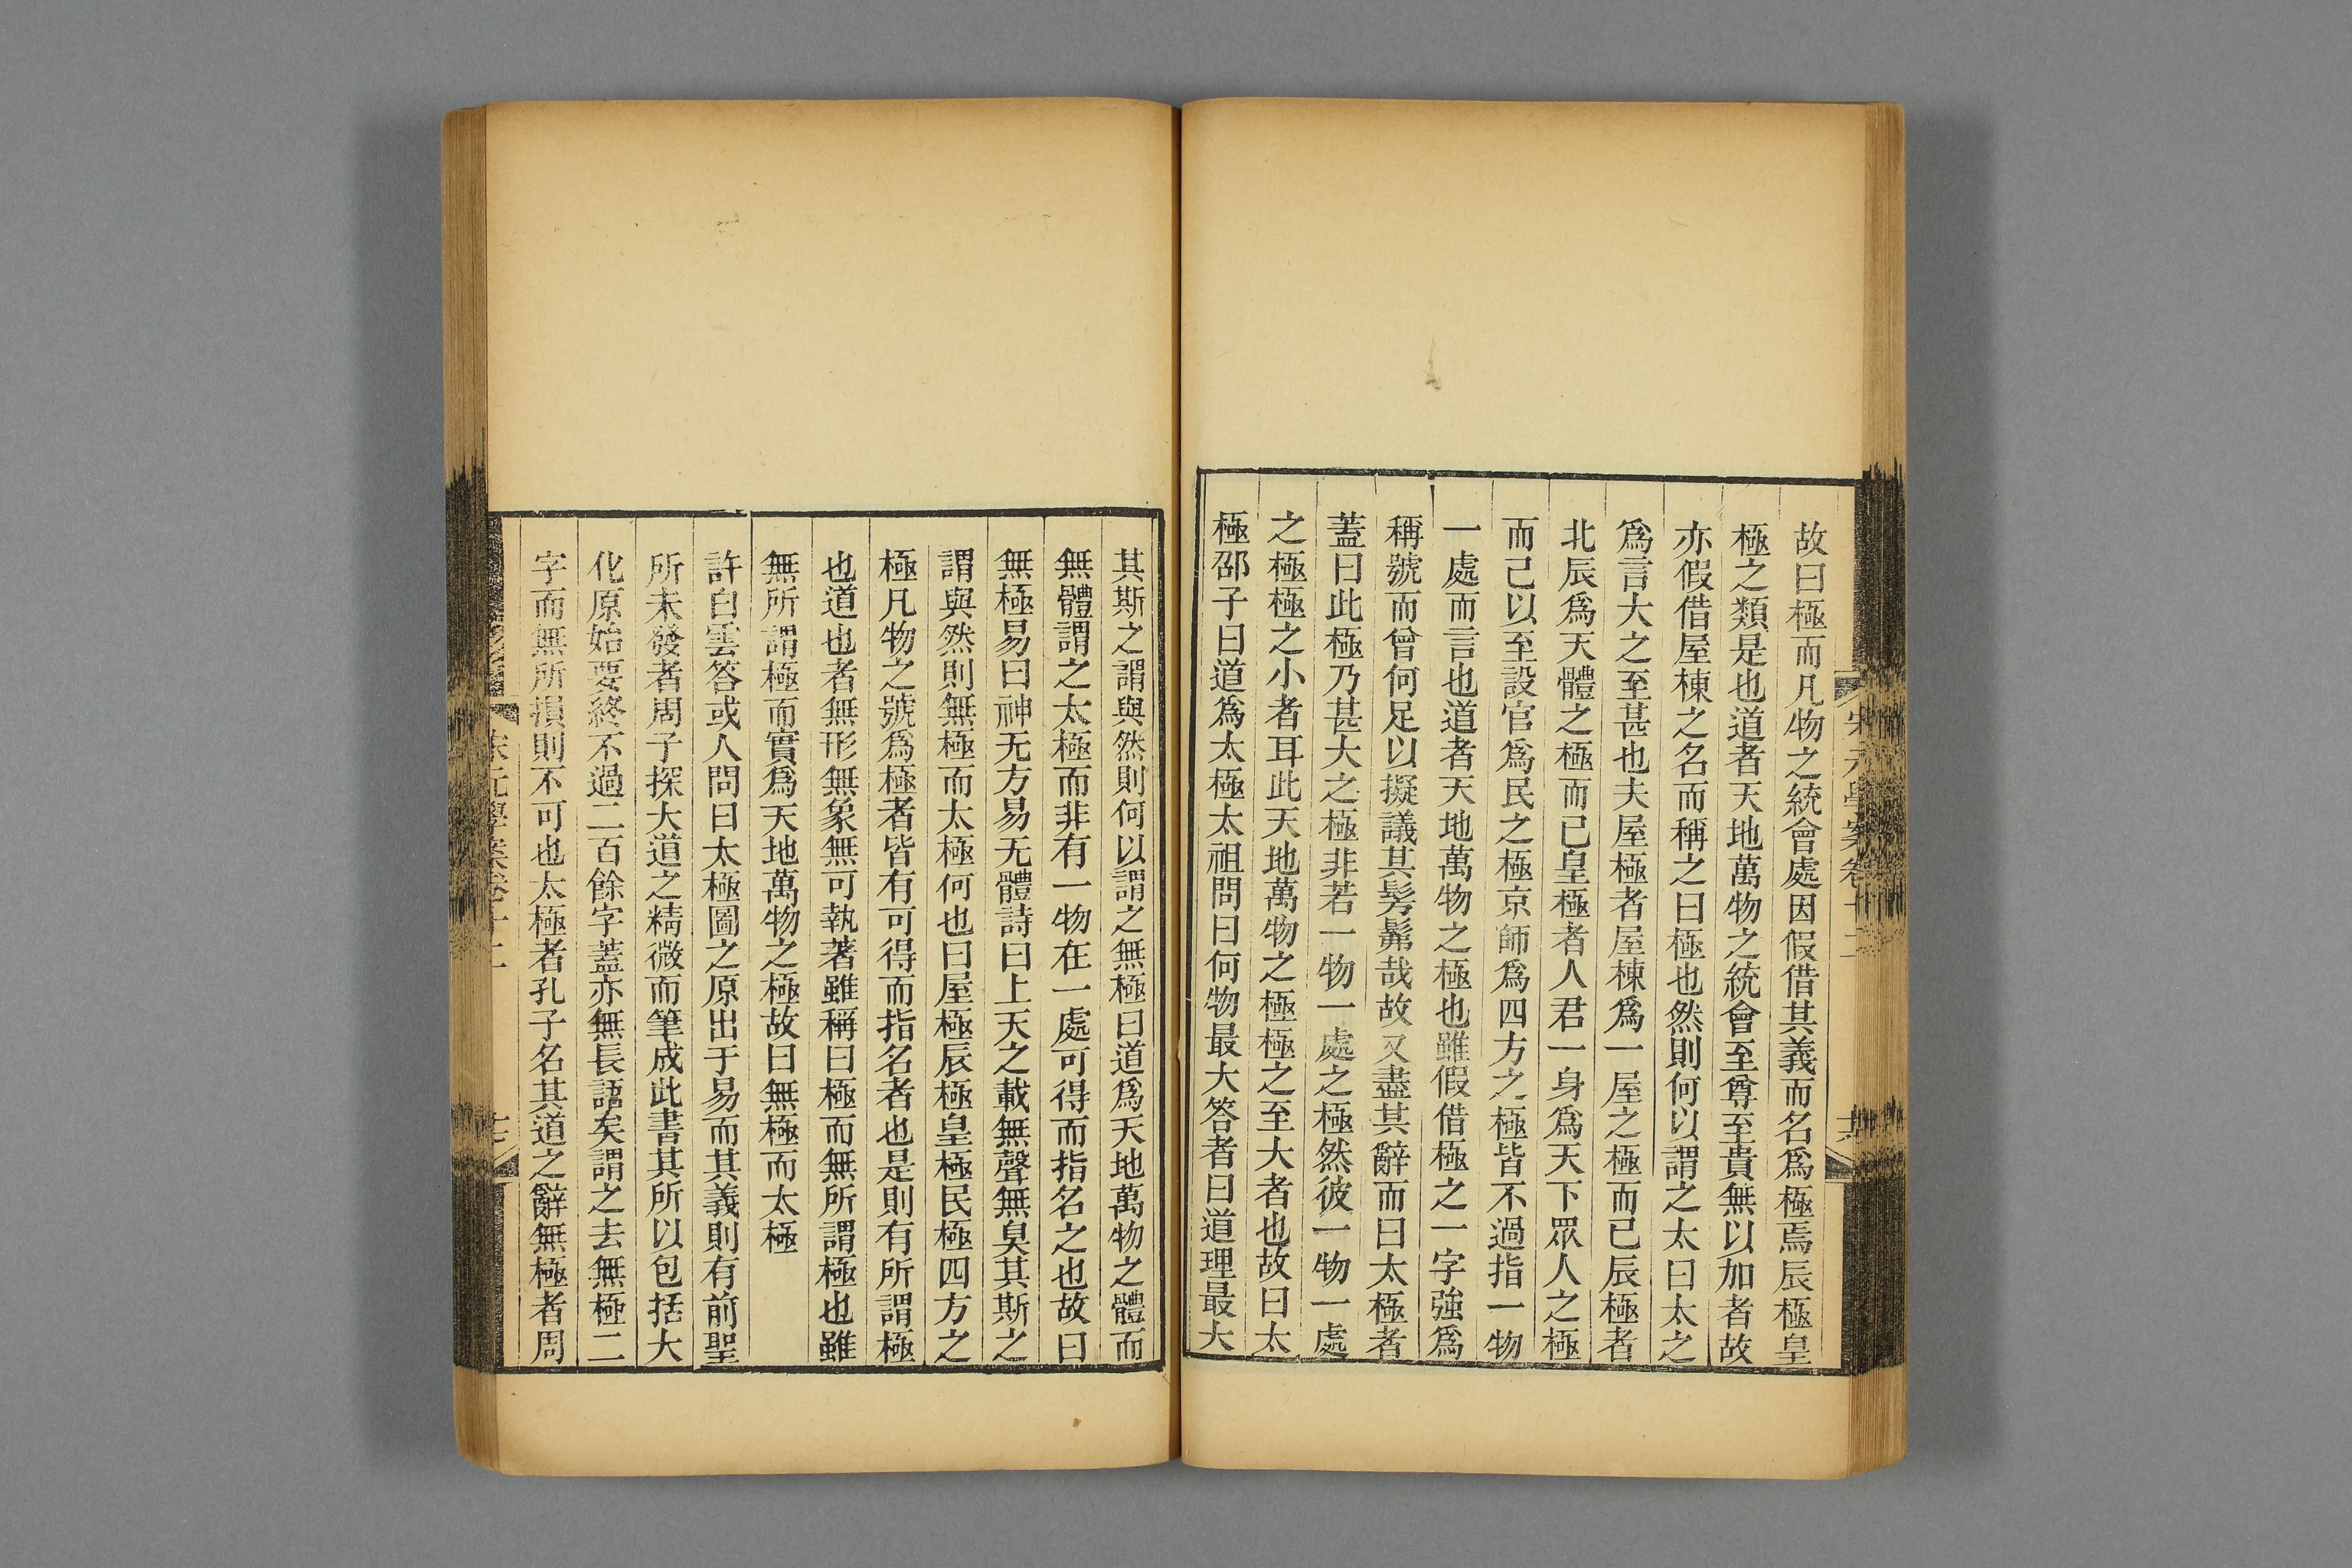 故曰極而凡物之統會處因假借其義而名爲極焉辰極皇
極之類是也道者天地萬物之統會至尊至貴無以加者故
亦假借屋棟之名而稱之曰極也然則何以謂之太曰太之
爲言大之至甚也夫屋極者屋棟爲一屋之極而已辰極者
北辰爲天體之極而已皇極者人君一身爲天下眾人之極
而已以至設官爲民之極京師爲四方之極皆不過指一物
一處而言也道者天地萬物之極也雖假借極之一字強爲
稱號而曾何足以擬議其髣髴哉故又盡其辭而曰太極者
蓋曰此極乃甚大之極非若一物一處之極然彼一物一處
之極極之小者耳此天地萬物之極極之至大者也故曰太
極邵子曰道爲太極太祖問曰何物最大答者曰道理最大
宋元學案卷十二
其斯之謂與然則何以謂之無極曰道爲天地萬物之體而
無體謂之太極而非有一物在一處可得而指名之也故曰
無極易曰神无方易无體詩曰上天之載無聲無臭其斯之
謂與然則無極而太極何也曰屋極辰極皇極民極四方之
極凡物之號爲極者皆有可得而指名者也是則有所謂極
也道也者無形無象無可執著雖稱曰極而無所謂極也雖
無所謂極而實爲天地萬物之極故曰無極而太極
許白雲答或人問曰太極圖之原出于易而其義則有前聖
所未發者周子探大道之精微而筆成此書其所以包括大
化原始要終不過二百餘字蓋亦無長語矣謂之去無極二
字而無所損則不可也太極者孔子名其道之辭無極者周